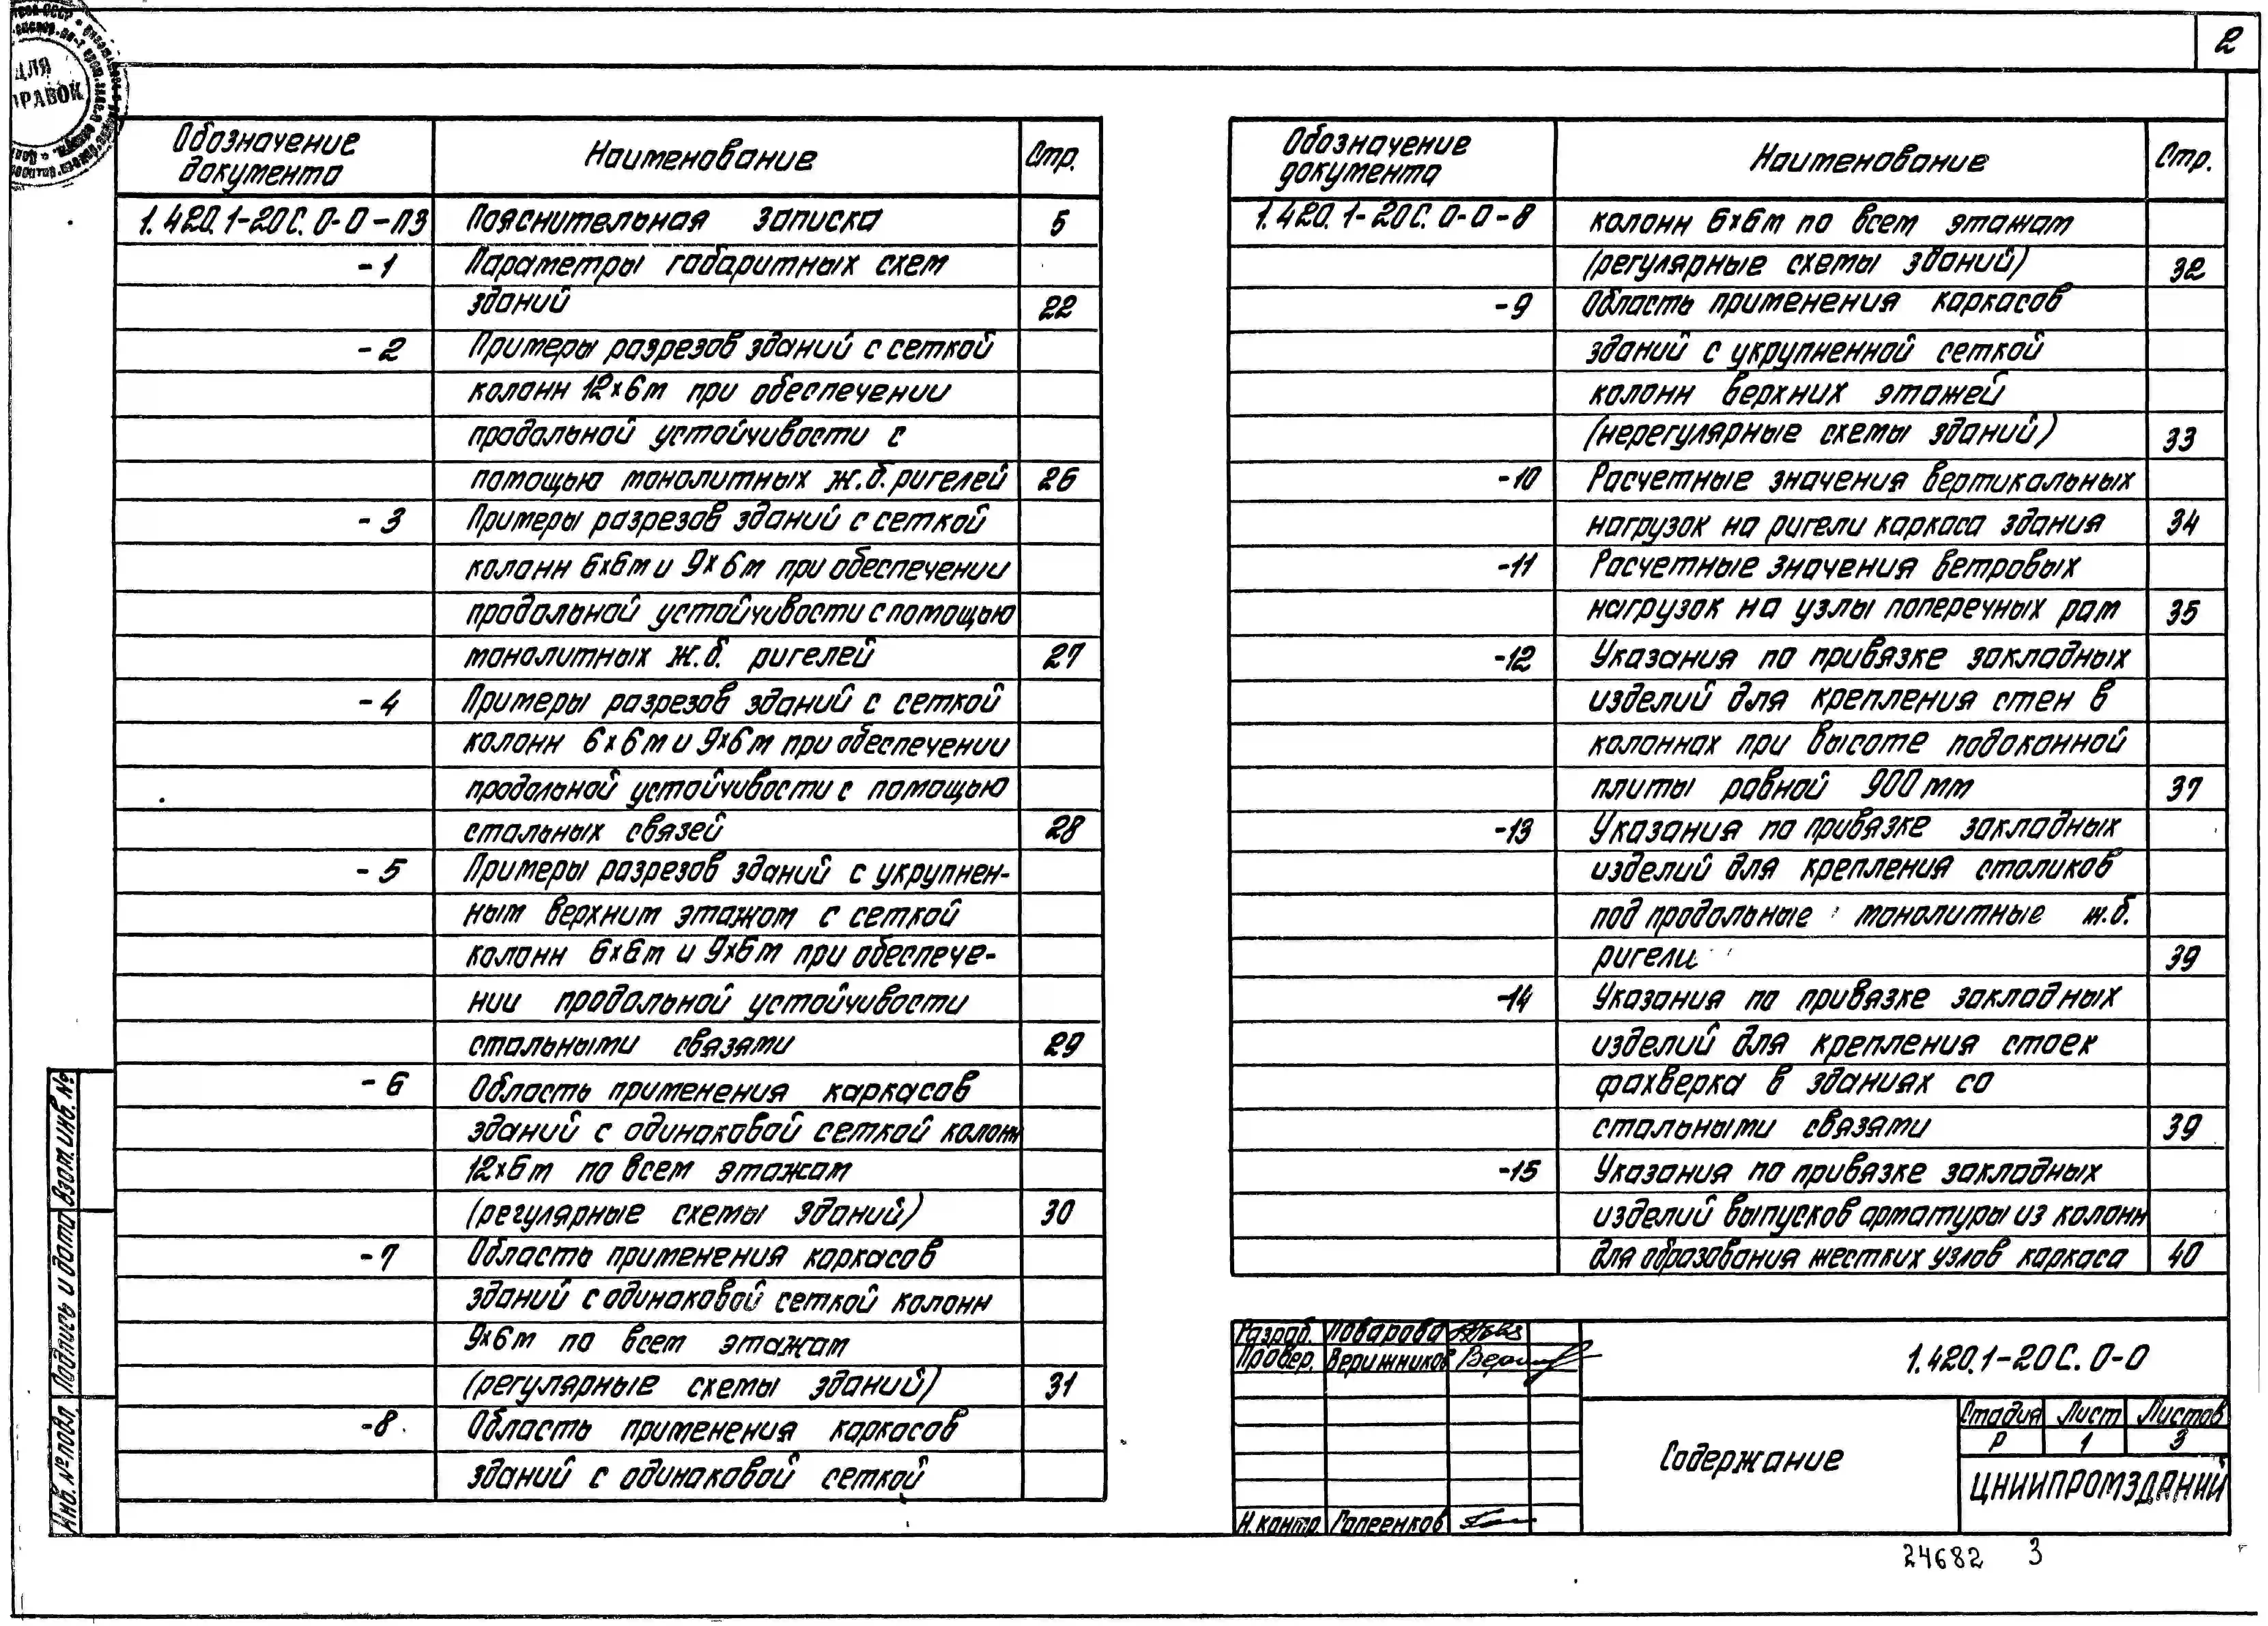 2
ДЛЯ
Обозначение документа Наименование Стр.
1.420.1-20С.0-0-ПЗ Пояснительная записка 5
-1 Параметры габаритных схем
зданий 22
-2 Примеры разрезов зданий с сеткой
колонн 12х6м при обеспечении
продольной устойчивости с
помощью монолитных ж.б. ригелей 26
-3 Примеры разрезов зданий с сеткой
колонн 6х6м и 9х6м при обеспечении
продольной устойчивости с помощью
монолитных ж.б. ригелей 27
-4 Примеры разрезов зданий с сеткой
колонн 6х6м и 9х6м при обеспечении
продольной устойчивости с помощью
стальных связей 28
-5 Примеры разрезов зданий с укрупнен-
ным верхним этажом с сеткой
колонн 6х6м и 9х6м при обеспече-
нии продольной устойчивости
стальными связями 29
-6 Область применения каркасов
зданий с одинаковой сеткой колонн
12х6м по всем этажам
(регулярные схемы зданий) 30
-7 Область применения каркасов
зданий с одинаковой сеткой колонн
9х6м по всем этажам
(регулярные схемы зданий) 31
-8 Область применения каркасов
зданий с одинаковой сеткой
Обозначение документа Наименование Стр.
1.420.1-20С.0-0-8 колонн 6х6м по всем этажам
(регулярные схемы зданий) 32
-9 Область применения каркасов
зданий с укрупненной сеткой
колонн верхних этажей
(нерегулярные схемы зданий) 33
-10 Расчетные значения вертикальных
нагрузок на ригели каркаса здания 34
-11 Расчетные значения ветровых
нагрузок на узлы поперечных рам 35
-12 Указания по привязке закладных
изделий для крепления стен в
колоннах при высоте подоконной
плиты равной 900мм 37
-13 Указания по привязке закладных
изделий для крепления столиков
под продольные монолитные ж.б.
ригели 39
-14 Указания по привязке закладных
изделий для крепления стоек
фахверка в зданиях со
стальными связями 39
-15 Указания по привязке закладных
изделий выпусков арматуры из колонн
для образования жестких узлов каркаса 40
Инв.№подл. Подпись и дата Взам.инв.№
Разраб. Поварова
Провер. Верижников
Н.контр. Гапеенков
1.420.1-20С.0-0
Содержание
Стадия Лист Листов
Р 1 3
ЦНИИПРОМЗДАНИЙ
24682 3